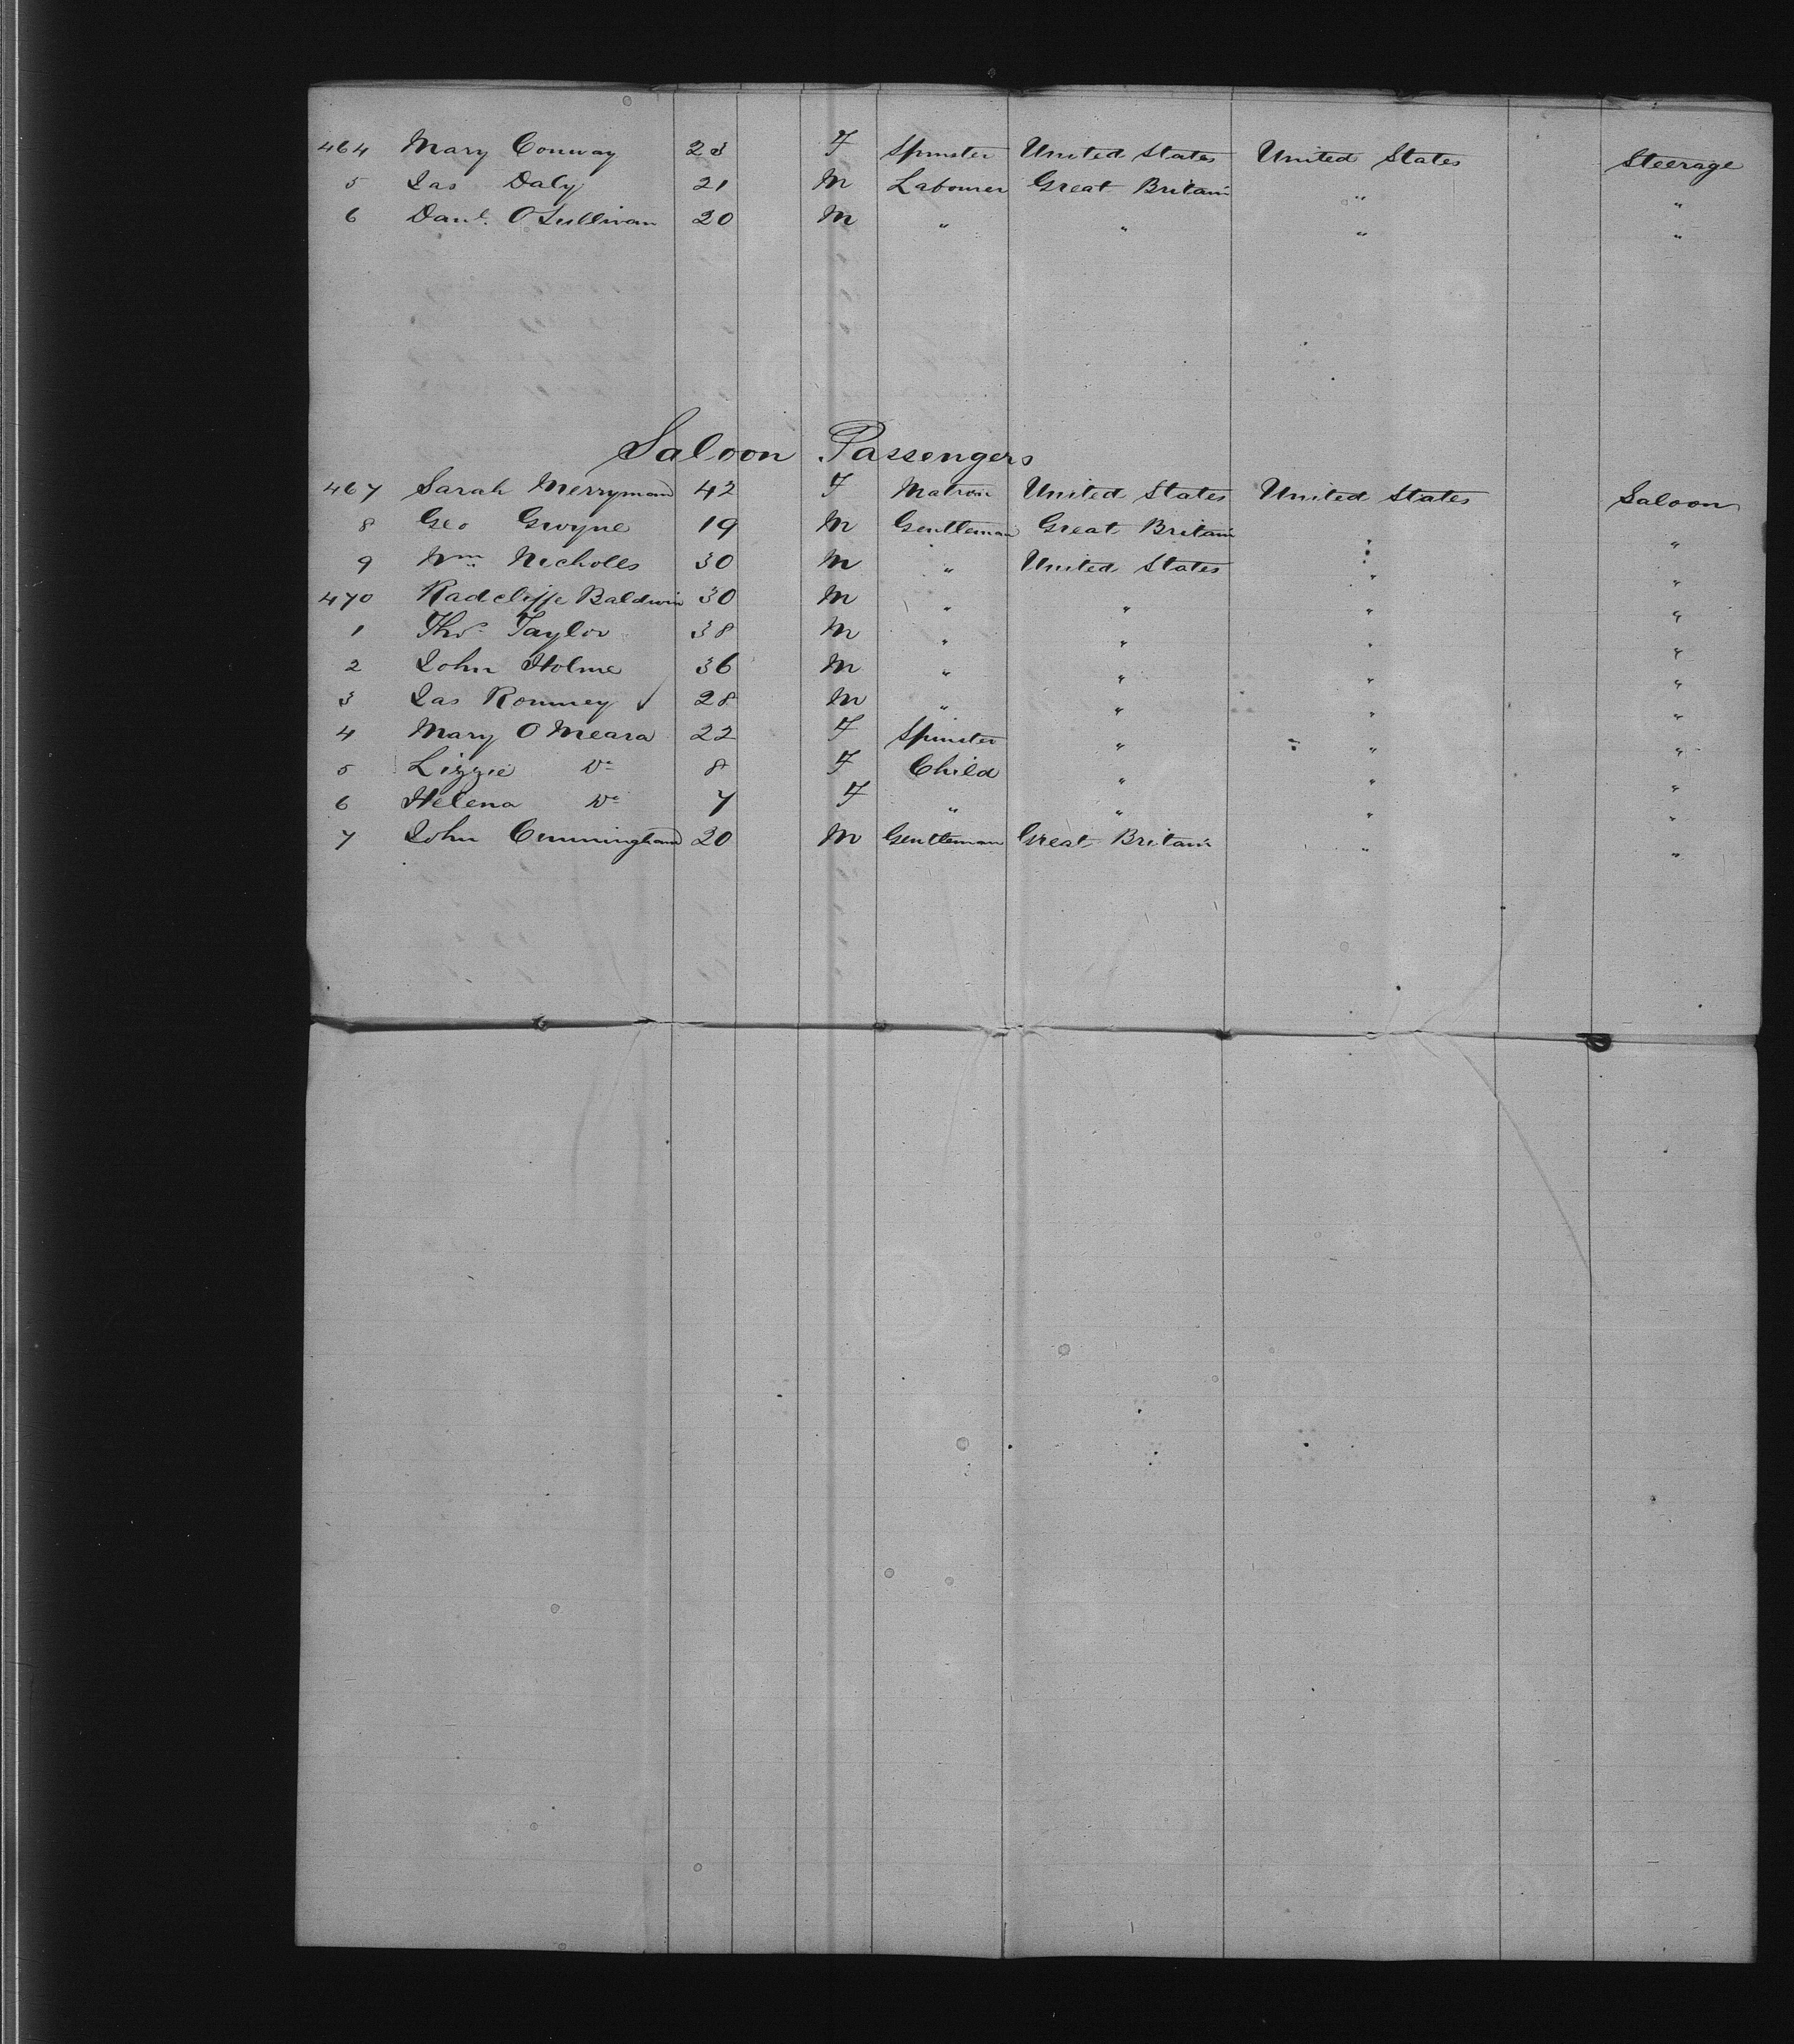 464 Mary Conway 23 F Spinster United States United States Steerage
5 Jas Daly 21 M Labourer Great Britain " "
6 Danl. O'Sullivan 20 M " " " "
Saloon Passengers
467 Sarah Merryman 42 F Matron United States United States Saloon
8 Geo Gwyne 19 M Gentleman Great Britain " "
9 Wm Nicholls 30 M " United States " "
470 Radcliffe Baldwin 30 M " " " "
1 Thos. Taylor 38 M " " " "
2 John Holme 36 M " " " "
3 Jas Romney 28 M " " " "
4 Mary O Meara 22 F Spinster " " "
5 Lizzie Do 8 F Child " " "
6 Helena Do 7 F " " " "
7 John Cunningham 20 M Gentleman Great Britain " "